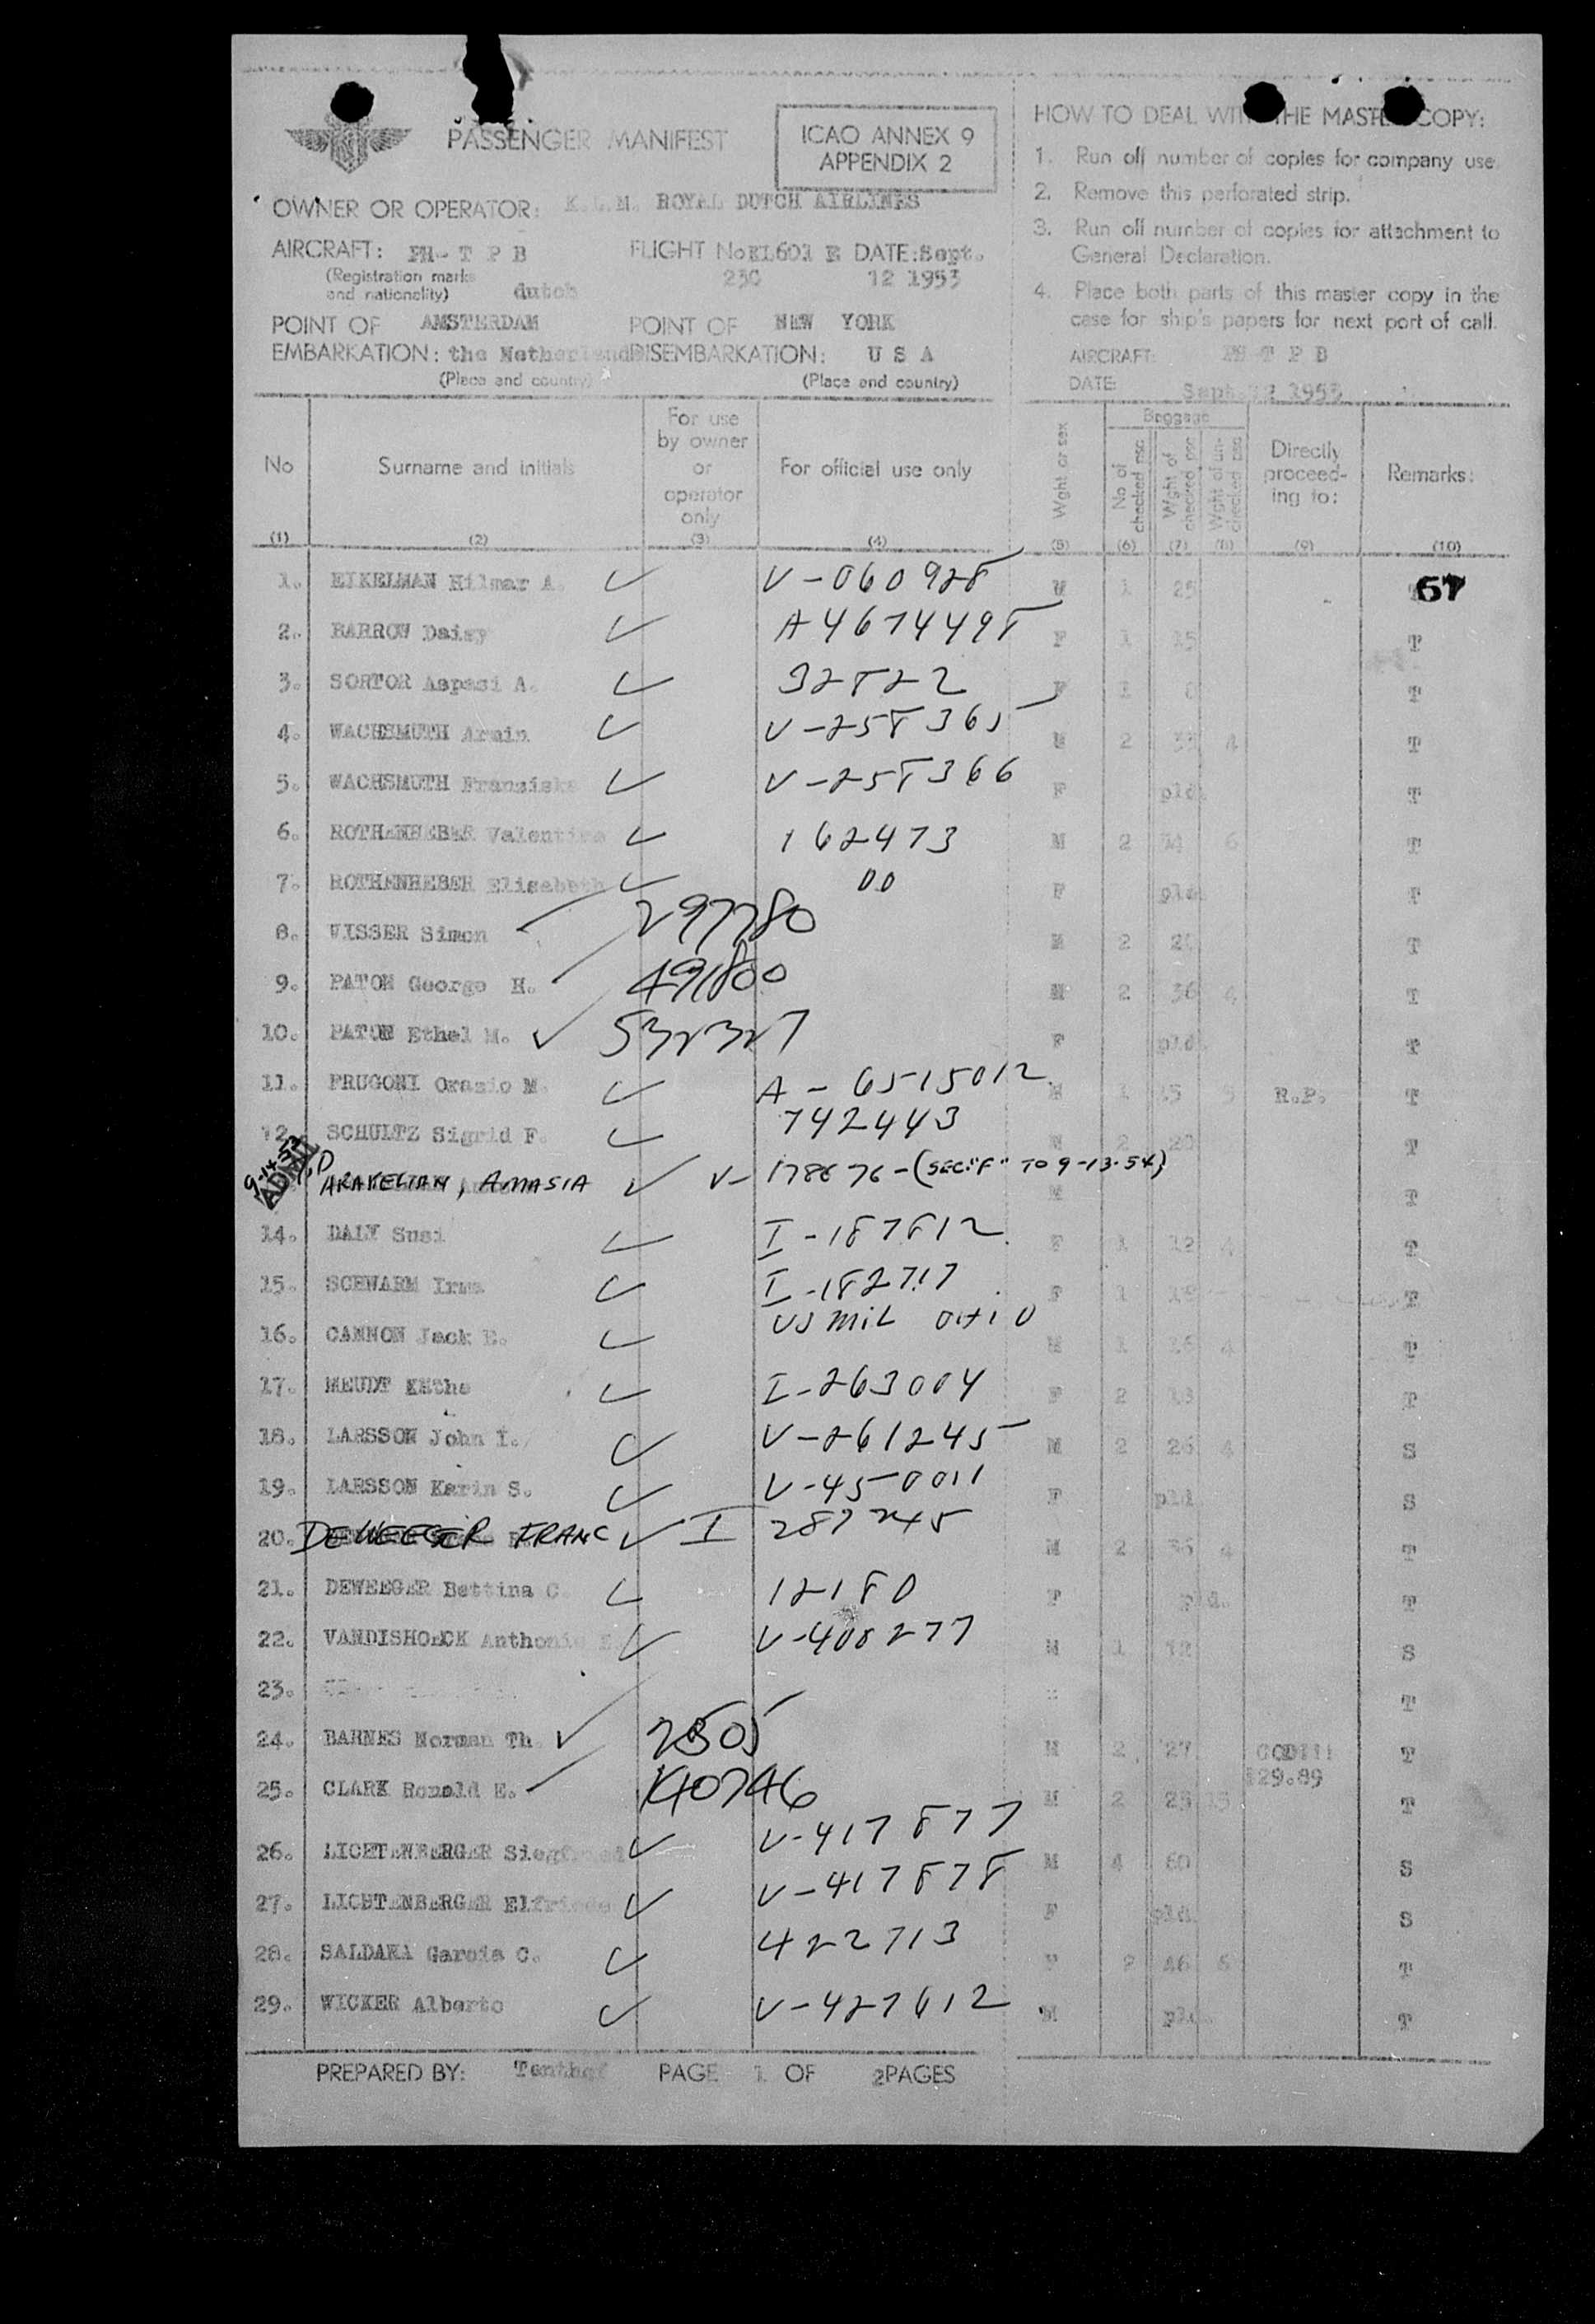 PASSENGER MANIFEST
ICAO ANNEX 9
APPENDIX 2
OWNER OR OPERATOR: K.L.M. ROYAL DUTCH AIRLINES
AIRCRAFT: PH-T P B FLIGHT No KL601 E DATE: Sept.
(Registration marks and nationality) dutch 230 12 1953
POINT OF EMBARKATION: AMSTERDAM the Netherlands
(Place and country)
POINT OF DISEMBARKATION: NEW YORK U S A
(Place and country)
HOW TO DEAL WITH THE MASTER COPY:
1. Run off number of copies for company use.
2. Remove this perforated strip.
3. Run off number of copies for attachment to
General Declaration.
4. Place both parts of this master copy in the
case for ship's papers for next port of call.
AIRCRAFT: PH-T P B
DATE: Sept. 12 1953
No Surname and initials For use by owner or operator only For official use only Wght or sex Baggage No of checked psc Wght of checked psc Wght of un-checked psc Directly proceed-ing to: Remarks:
(1) (2) (3) (4) (5) (6) (7) (8) (9) (10)
1. EIKELMAN Hilmar A. V-060928 M 1 25 67
2. BARROW Daisy A4674498 F 1 15 T
3. SORTOR Aspasi A. 32822 F 1 T
4. WACHSMUTH Armin V-258365 M 2 33 4 T
5. WACHSMUTH Franziska V-258366 F pld. T
6. ROTHENHEBER Valentine 162473 M 2 6 T
7. ROTHENHEBER Elisabeth 00 F pld. T
8. VISSER Simon 297780 M 2 T
9. PATON George H. 491800 M 2 36 4 T
10. PATON Ethel M. 532327 F pld. T
11. FRUGONI Orazio M. A-6515012 M 1 15 5 R.P. T
12. SCHULTZ Sigrid F. 742443 2 20 T
9-14-53
ARAKELIAN, AMASIA V-178676-(SEC."F" TO 9-13-54) M T
14. DALY Susi I-187812 F 1 12 4 T
15. SCHWARM Irma I-182717 F 1 T
16. CANNON Jack E. US MIL M 1 16 4 T
17. MEUDT Käthe I-263004 F 2 T
18. LARSSON John I. V-261245 M 2 26 4 S
19. LARSSON Karin S. V-450011 F pld. S
20. DEWEEGER FRANC I 287245 M 2 36 4 T
21. DEWEEGER Bettina C. 12180 F pld. T
22. VANDISHOECK Anthonie V-408277 M 1 12 S
23. T
24. BARNES Norman Th. 2505 M 2 27 COD!!! T
$29.89
25. CLARK Ronald E. 140746 M 2 25 15 T
26. LICHTENBERGER Siegfried V-417877 M 4 60 S
27. LICHTENBERGER Elfriede V-417878 F pld. S
28. SALDAKA Garcia C. 422713 2 46 6 T
29. WICKER Alberto V-427612 M pld. T
PREPARED BY: PAGE 1 OF 2 PAGES